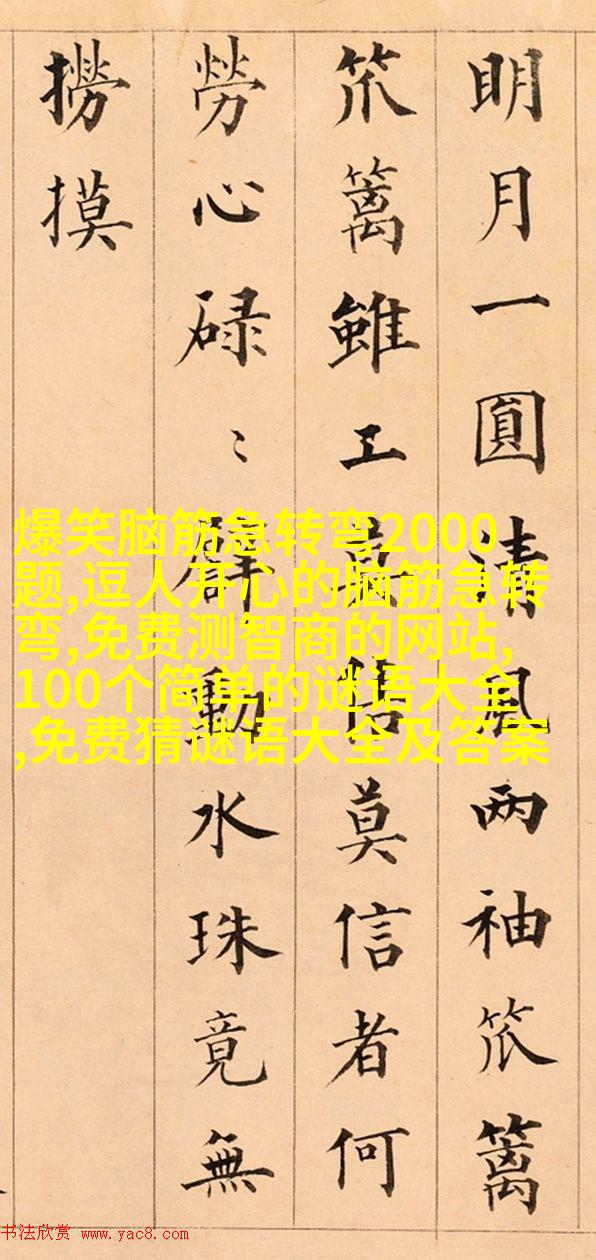 明月一圓清風两袖笊篱
笊篱雖工莫信莫信者何
勞心碌〻動水珠竟無
撈摸
爆笑脑筋急转弯2000
题,逗人开心的脑筋急转
弯,免费测智商的网站,
100个简单的谜语大全
,免费猜谜语大全及答案
书法欣赏 www.yac8.com